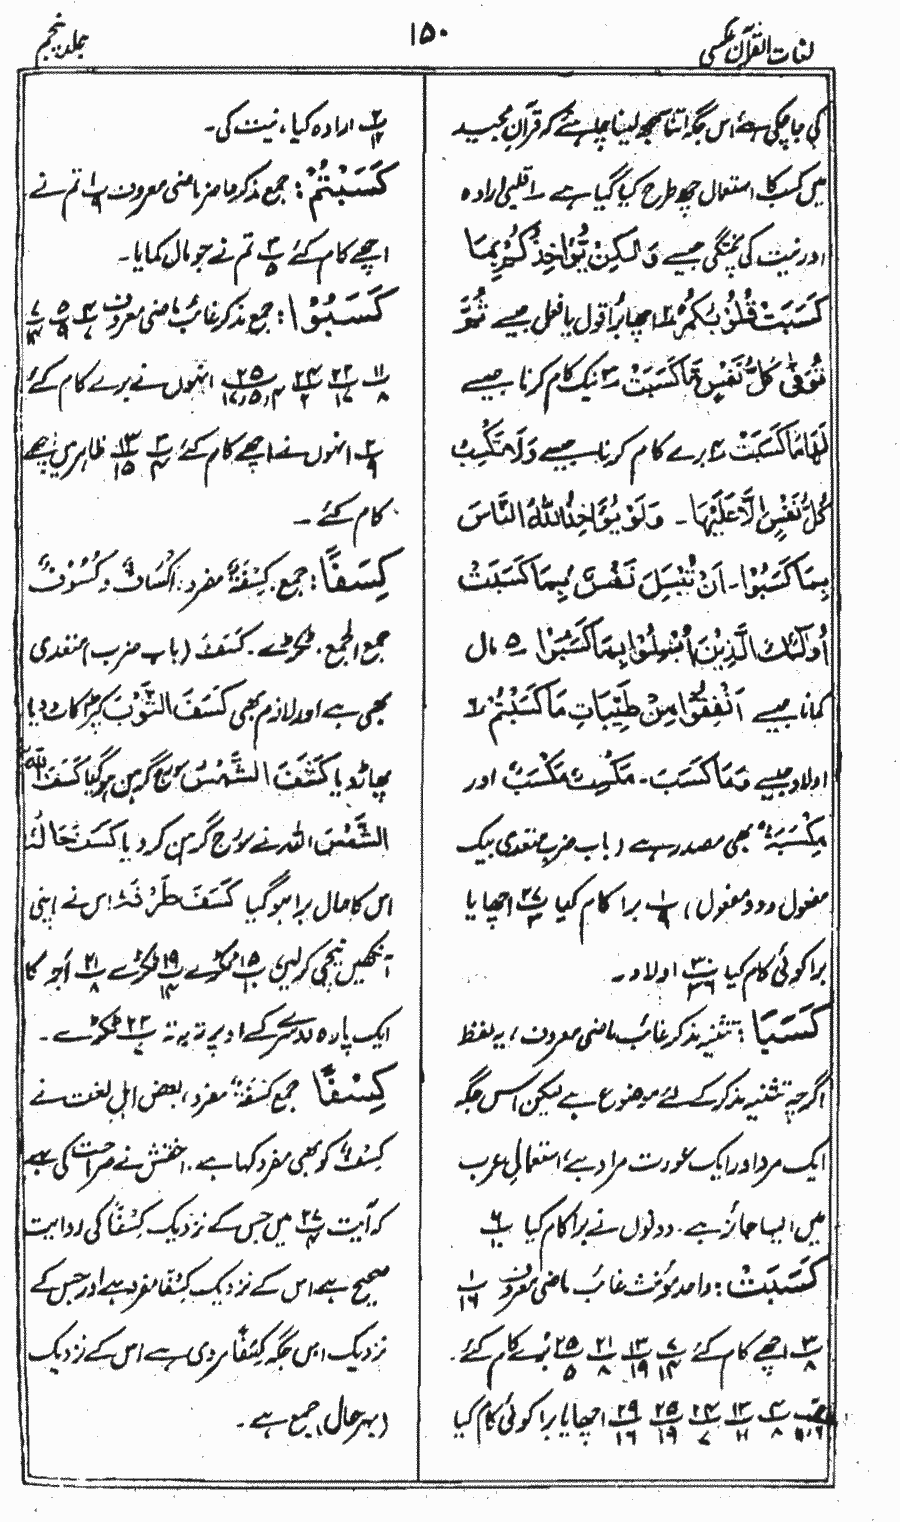 لغات القرآن عکسی
۱۵۰
جلد پنجم
کی جا چکی ہے اس جگہ اتنا سمجھ لینا چاہئے کہ قرآن مجید
میں کسب کا استعمال چھ طرح کیا گیا ہے ۱؎ قلبی ارادہ
اور نیت کی پختگی جیسے وَلٰکِنْ یُّؤَاخِذُکُمْ بِمَا
کَسَبَتْ قُلُوْبُکُمْ ۲؎ اچھا برا قول یا فعل جیسے ثُمَّ
تُوَفّٰی کُلُّ نَفْسٍ مَّا کَسَبَتْ ۳؎ نیک کام کرنا جیسے
لَهَا مَا کَسَبَتْ ۴؎ برے کام کرنا جیسے وَلَا تَکْسِبُ
کُلُّ نَفْسٍ اِلَّا عَلَیْهَا۔ وَلَوْ یُؤَاخِذُ اللّٰهُ النَّاسَ
بِمَا کَسَبُوْا۔ اَنْ تُبْسَلَ نَفْسٌ بِمَا کَسَبَتْ
اُولٰٓئِكَ الَّذِیْنَ اُبْسِلُوْا بِمَا کَسَبُوْا ۵؎ مال
کمانا جیسے اَنْفِقُوْا مِنْ طَیِّبَاتِ مَا کَسَبْتُمْ ۶؎
اولاد جیسے وَمَا کَسَبَ۔ مَکْسِبٌ مَکْسَبٌ اور
مَکْسَبَۃٌ بھی مصدر ہے (باب ضرب متعدی بیک
مفعول و دو مفعول) ۱/۹ برا کام کیا ۲۷/۳ اچھا یا
برا کوئی کام کیا ۳۰/۳۶ اولاد۔
کَسَبَا: تثنیہ مذکر غائب ماضی معروف، یہ لفظ
اگرچہ تثنیہ مذکر کے لئے موضوع ہے لیکن اس جگہ
ایک مرد اور ایک عورت مراد ہے، استعمال عرب
میں ایسا جائز ہے۔ دونوں نے برا کام کیا ۶/۱۰
کَسَبَتْ: واحد مؤنث غائب ماضی معروف ۱/۱۶
۳/۸ اچھے کام کئے ۷/۱۴ ۱۳/۱۹ ۲۱/۸ ۲۵/۵ برے کام کئے۔
۲۴/۷ ۲۵/۱۹ ۲۹/۱۶ اچھا یا برا کوئی کام کیا
۲/۱۲ ارادہ کیا، نیت کی۔
کَسَبْتُمْ: جمع مذکر حاضر ماضی معروف ۱/۹ تم نے
اچھے کام کئے ۳/۵ تم نے جو مال کمایا۔
کَسَبُوْا: جمع مذکر غائب ماضی معروف
۱۱/۸ ۲۲/۱۷ ۲۴/۲ انہوں نے برے کام کئے
۲/۹ انہوں نے اچھے کام کئے ۳/۴ ۱۳/۱۵ ظاہر میں اچھے
کام کئے۔
کِسَفًا: جمع، کِسْفَۃٌ مفرد، اَکْسَافٌ و کُسُوْفٌ
جمع الجمع۔ ٹکڑے۔ کَسَفَ (باب ضرب) متعدی
بھی ہے اور لازم بھی کَسَفَ الثَّوْبَ کپڑا کاٹ دیا
پھاڑ دیا کَسَفَتِ الشَّمْسُ سورج گرہن ہو گیا کَسَفَ اللّٰهُ
الشَّمْسَ اللہ نے سورج گرہن کر دیا کَسَفَ حَالُهٗ
اس کا حال برا ہو گیا کَسَفَ طَرْفَهٗ اس نے اپنی
آنکھیں نیچی کر لیں، ۱۵/۱۰ ٹکڑے ۱۹/۱۴ ٹکڑے ۲۱/۸ اُجو کا
ایک پارہ دوسرے کے اوپر تہ بہ تہ ۲۲ ٹکڑے۔
کِسْفًا جمع کِسْفَۃٌ مفرد، بعض اہل لغت نے
کِسْفٌ کو بھی مفرد کہا ہے۔ اخفش نے صراحت کی ہے
کہ آیت ۲۷/۴ میں جس کے نزدیک کِسْفًا کی روایت
صحیح ہے اس کے نزدیک کِسْفًا مفرد ہے اور جس کے
نزدیک اس جگہ کِسَفًا مروی ہے اس کے نزدیک
(بہرحال) جمع ہے۔